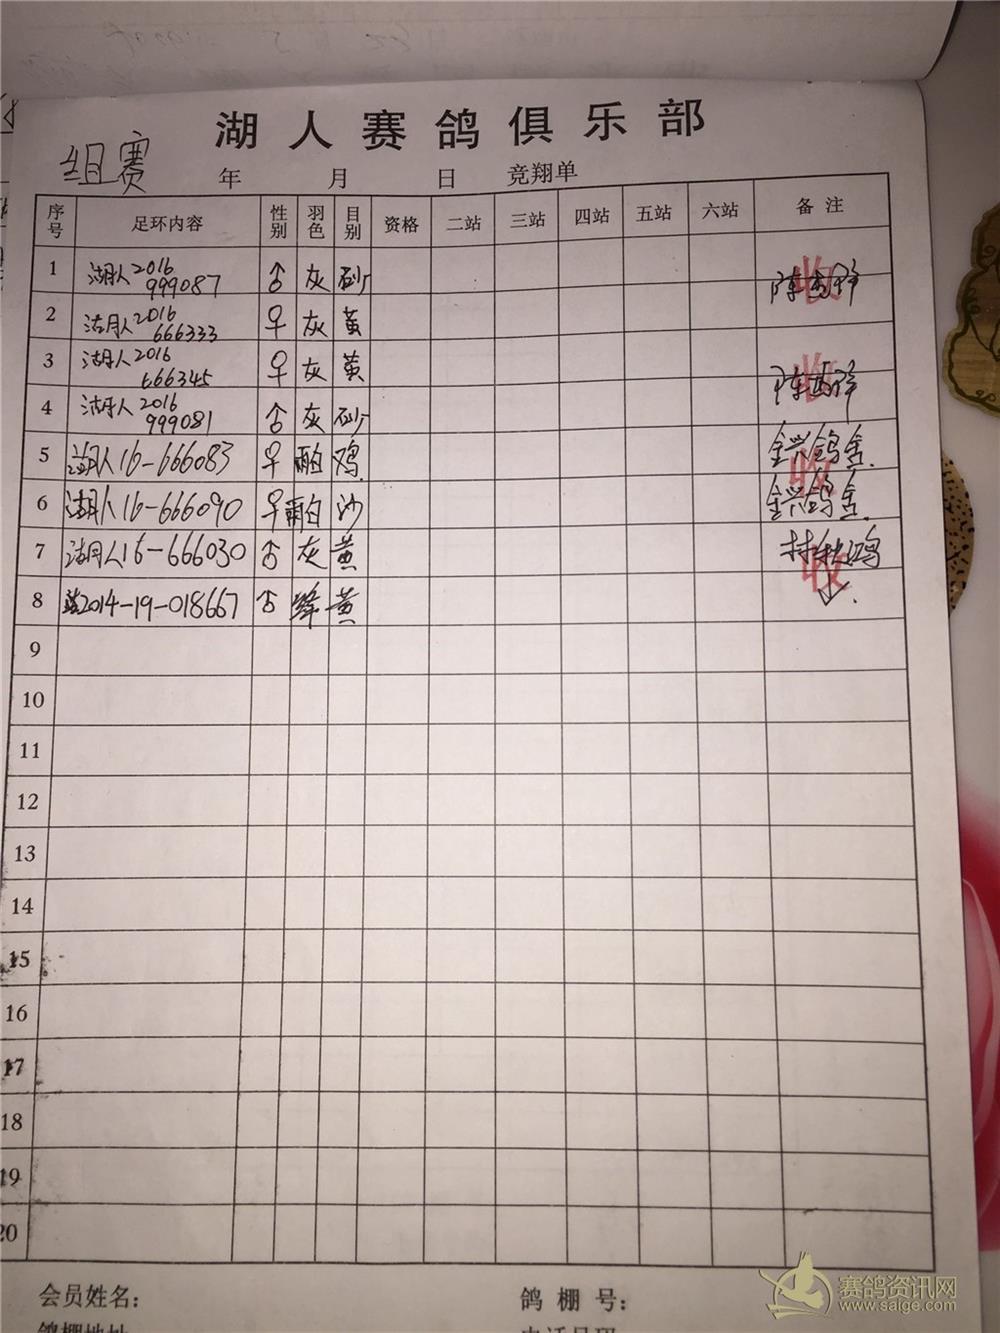 湖人赛鸽俱乐部
组赛
年 月 日 竞翔单
序号 足环内容 性别 羽色 目别 资格 二站 三站 四站 五站 六站 备注
1 湖人2016 ♂ 灰 砂 收
999087
2 湖人2016 ♀ 灰 黄
666333
3 湖人2016 ♀ 灰 黄 收
666345
4 湖人2016 ♂ 灰 砂
999081
5 湖人16-666083 ♀ 雨白 鸡 收
6 湖人16-666090 ♀ 雨白 沙
7 湖人16-666030 ♂ 灰 黄 收
8 2014-19-018667 ♂ 绛 黄
9
10
11
12
13
14
15
16
17
18
19
20
会员姓名: 鸽棚号:
鸽棚地址
赛鸽资讯网
www.saige.com